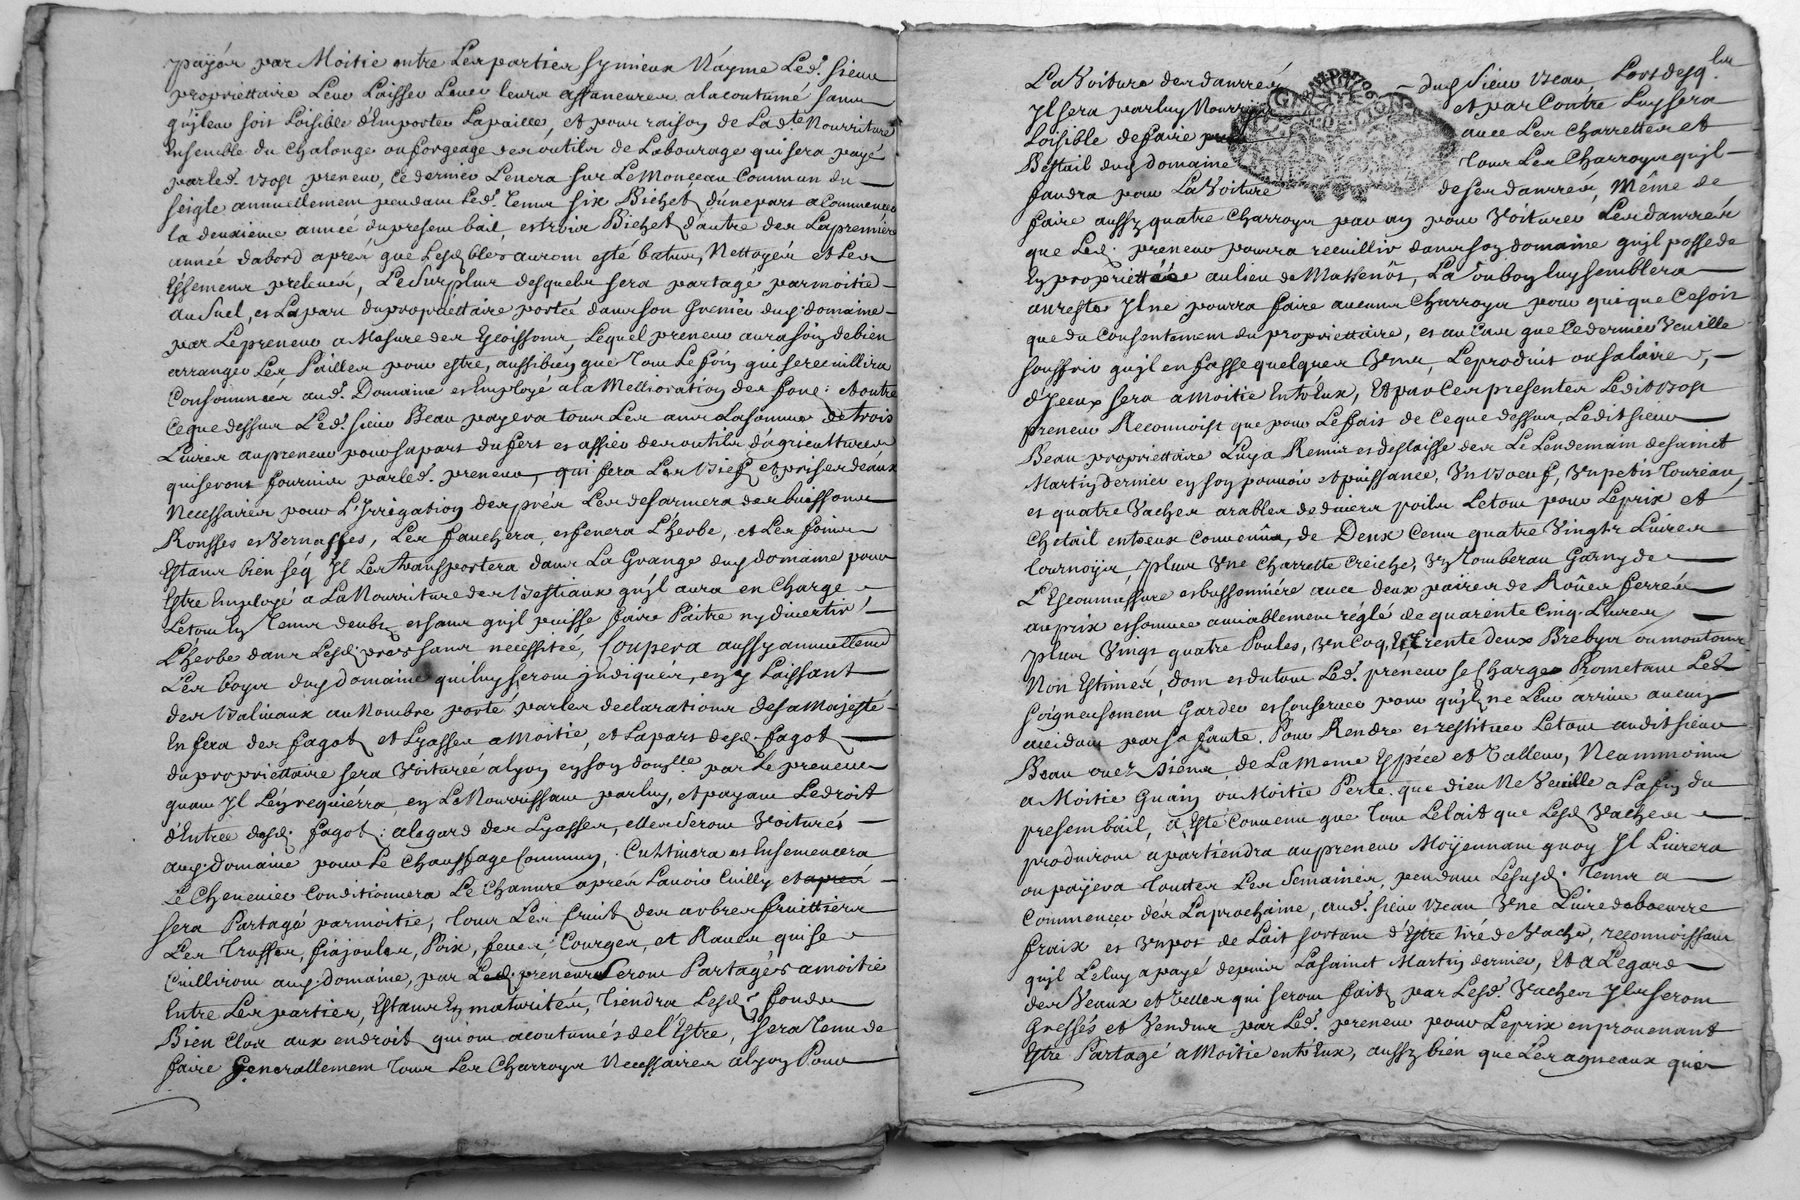 payér par Moitié entre Les parties sy mieux N'ayme Led. sieur
propriettaire Leur Laisser Lever leurs affaneures a la coutume sans
qu'il leur soit Loisible d'Emporter La paille, et pour raison de Lad.te Nourriture
Ensemble du Chalonge ou forgeage des outils de Labourage qui sera payé
par led. Vost preneur, Ce dernier Levera sur Le Monceau Commun du
seigle annuellement pendant Led. Tems six Bichet d'une part a Commencer
la deuxieme année du present bail, et trois Bichet d'autre dez La premiere
année d'abord aprés que Lesd bleds auront esté batus, Nettoyés et Les
Essemens prelevés, Le Surplus desquels sera partagé par moitié
au Suel, et La part du propriettaire portée dans son Grenier dud. domaine
par Le preneur a Mesure des Ecoissons, Lequel preneur aura soin de bien
arranger Les Pailles pour estre, aussi bien que Tous Le foin qui se recuillira
Consommées aud. Domaine et Employé a la Mellioration des fons: et outre
Ce que dessus Led. sieur Beau payera tous Les ans La somme de trois
Livres au preneur pour sa part du fert et assier des outils d'agriculture
qui seront fournis par led. preneur, qui fera Les Bief et prises d'eaux
Necessaires pour L'Irrigation des prés Les desarmera des buissons
Ronsses et Vernasses, Les fauchera, et fenera L'herbe, et Les foins
Estans bien séq Il Les transportera dans La Grange dud domaine pour
Estre Employé a La Nourriture des Bestiaux qu'il aura en Charge
Le tout en Tems deub, et sans qu'il puisse faire Paitre ny divertir
L'herbe dans Lesd. prés sans necessitée, Coupera aussy annuellement
Les boys dud domaine qui luy seront indiqués, en y Laissant
des Baliveaux au Nombre porté par les declarations de sa Majesté
En fera des fagot et Lyasses a moitié, et La part desd. fagot
du propriettaire sera Voiturée a Lyon en son domlle par Le preneur
quant Il L'en requierra, en Le Nourrissant par luy, et payant Le droit
d'Entrée desd. fagot: a legard des Lyasses, elles seront Voiturés
aud. domaine pour Le Chauffage Commun, Cultivera et Ensemencera
Le Chenevier Conditionnera Le Chanvre aprés L'avoir Cuilly et aprés
sera Partagé par moitié, Tous Les fruit des arbres fruittiers
Les Truffes, fiajoules, Poix, feves, Courges, et Raves qui se
Cuilliront aud. domaine, par Led. preneur Seront Partagés a moitié
Entre Les parties, Estans En maturitée, Tiendra Lesd. fonds
Bien Clos aux endroit qui ont acoutumés de l'Estre, sera Tenu de
faire Generallement Tous Les Charroys Necessaires a Lyon Pour
La Voiture des danrrées dud. Sieur Beau Lors desq.ls
Il sera par luy Nourry et par Contre Luy sera
Loisible de faire avec Les Charrettes et
Bestail dud domaine Tous Les Charroys qu'il
faudra pour La Voiture de ses danrrées, Même de
faire aussy quatre Charroys par an pour Voiturer Les danrrées
que Led. preneur pourra recuillir dans son domaine qu'il possede
En propriettée au lieu de Massenôt, La ou bon luy semblera
au reste Il ne pourra faire aucuns Charroys pour qui que Ce soit
que du Consentement du propriettaire, et au Cas que Ce dernier Veuille
souffrir qu'il en fasse quelques Uns, Le produit ou salaire
d'Iceux sera a moitié Entr'Eux, Et par Ces presentes Ledit Vost
preneur Reconnoist que pour Le fait de Ce que dessus, Ledit sieur
Beau propriettaire Luy a Remis et deslaissé des Le Lendemain de saint
Martin dernier en son pouvoir et puissance, Un Boeuf, Un petit Toureau,
et quatre Vaches arables de divers poils Le tout pour Le prix et
Chetail entr'eux Convenus, de Deux Cens quatre Vingts Livres
Tournoys, plus Une Charrette Creiche, Un Tombereau Garny de
L'Escoumassure et bussonniére avec deux paires de Roües ferrées
au prix et somme amiablement réglé de quarente Cinq Livres
plus Vingt quatre Poules, Un Coq, Et Trente deux Brebys ou moutons
Non Estimés, dont et du tout Led. préneur se Charge Prometant Les
soigneusement Garder et Conserver pour qu'il ne Leur arrive aucun
accident par sa faute. Pour Rendre et restituer Le tout audit sieur
Beau ouez siens, de La meme Espéce et Valleur, Neammoins
a Moitié Guain ou Moitié Perte. que dieu Ne Veuille a La fin du
present bail, a Esté Convenu que Tout Le lait que Lesd Vaches
produiront apartiendra au preneur Moyennant quoy Il Livrera
ou payera Touttes Les Semaines, pendant Lesusd. Tems a
Commencer dés La prochaine, aud. sieur Beau Une Livre de boeurre
fraix et Un pot de Lait sortant d'Estre tiré de Vache, reconnoissant
qu'il Le luy a payé depuis La saint Martin dernier, Et a L'egard
des Veaux et Velles qui seront fait par Lesd. Vaches Ils seront
Gressés et Vendus par Led. preneur pour Le prix en provenant
Estre Partagé a Moitié entr'Eux, aussy bien que Les agneaux qui